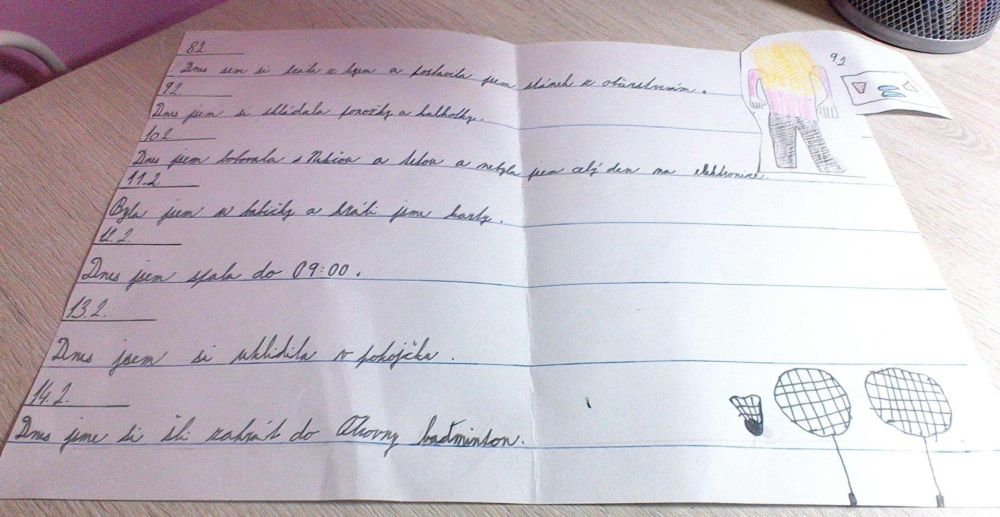 8.2.
Dnes sem si hrála a postavila jsem stánek s občerstvením.
9.2.
9.2
Dnes jsem si skládala ponožky a kalhotky.
10.2.
Dnes jsem a tetou a nebyla jsem celý den na elektronice.
11.2.
Byla jsem u babičky a hráli jsme karty.
12.2.
Dnes jsem spala do 09:00.
13.2.
Dnes jsem si uklidila v pokojíčku.
14.2.
Dnes jsme si šli zahrát do badminton.